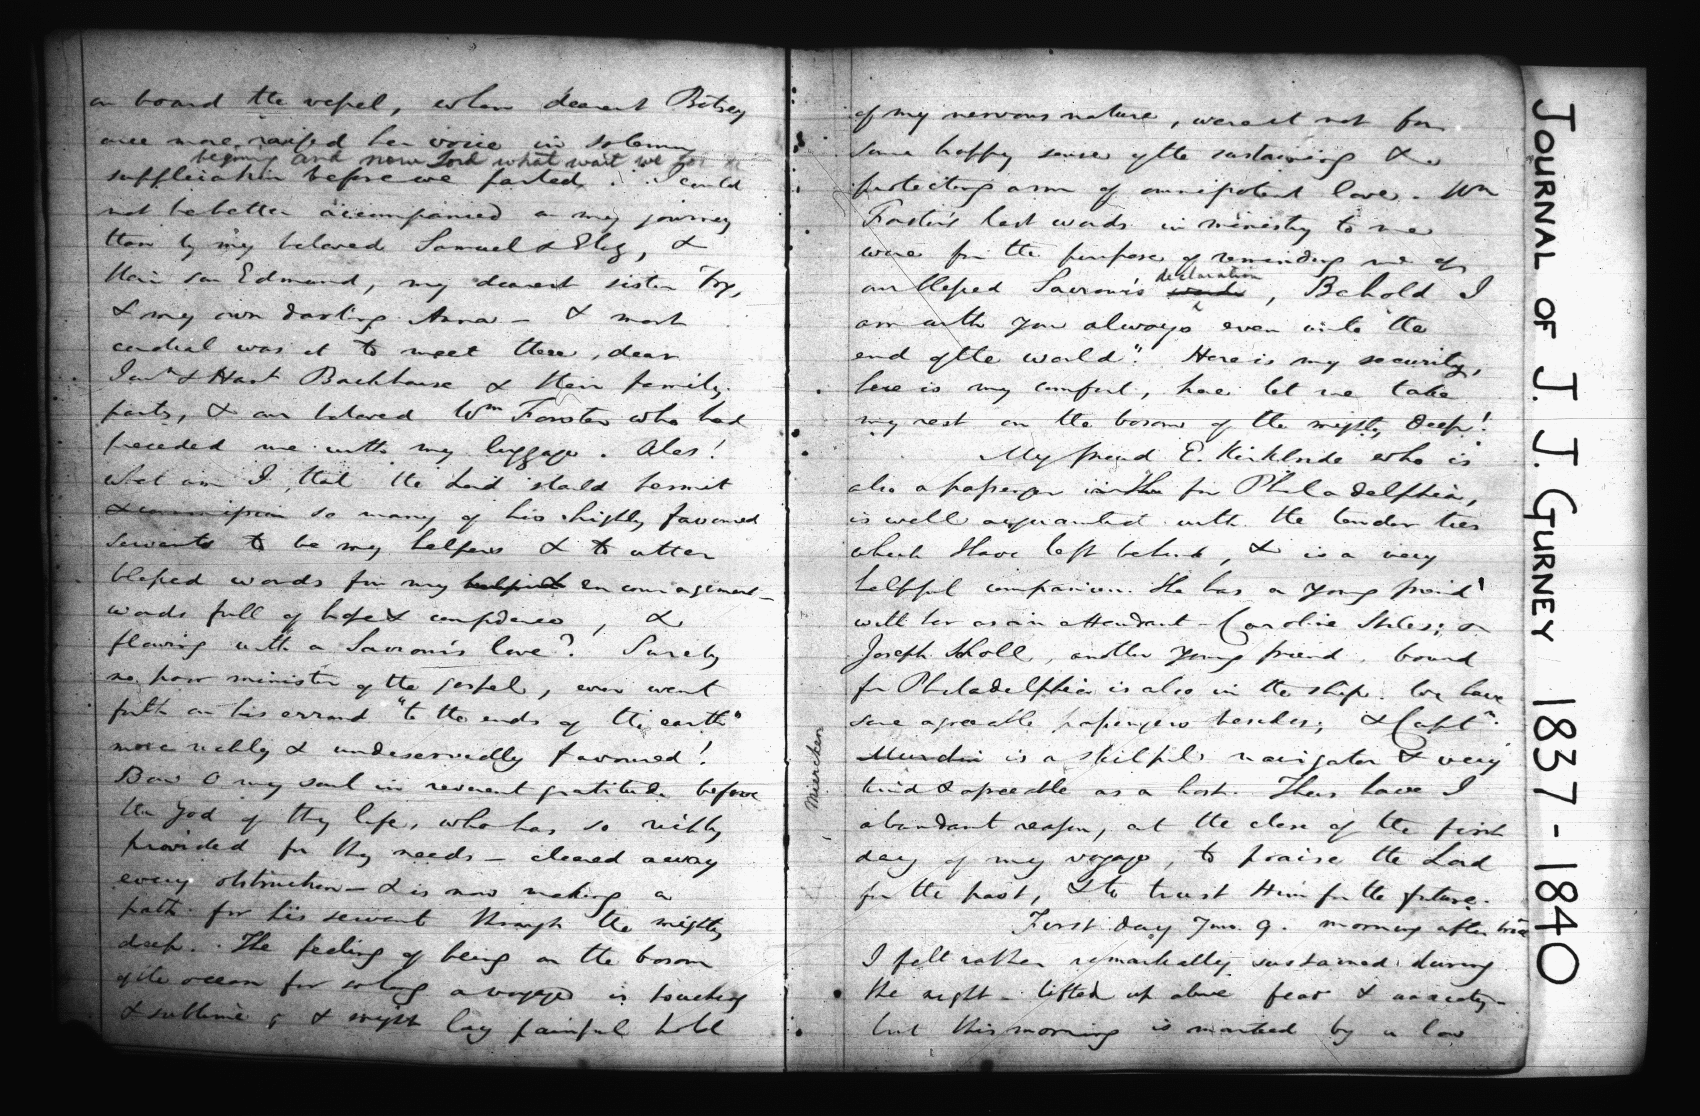 on board the vessel, when dearest Betsey
once more raised her voice in solemn
begining and now Lord what wait we for
supplication before we parted. I could
not be better accompanied on my journey
than by my beloved Samuel & Eliz, &
their son Edmund, my dearest sister Fry,
& my own darling Anna — & most
cordial was it to meet there, dear
Jonn & Hanh Backhouse & their family
party, & our beloved Wm Forster who had
preceded me with my luggage. Alas!
what am I, that the Lord should permit
& commission so many of his highly favoured
servants to be my helpers & to utter
blessed words for my encouragement —
words full of hope & confidence, &
flowing with a Saviour's love? Surely
no poor minister of the gospel, ever went
forth on his errand "to the ends of the earth"
more richly & undeservedly favoured!
Bow O my soul in reverent gratitude before
the God of thy life, who has so richly
provided for thy needs — cleared away
every obstruction — & is now making a
path for his servant through the mighty
deep. The feeling of being on the bosom
of the ocean for so long a voyage is touching
& sublime, & might lay painful hold
of my nervous nature, were it not for
some happy sense of the sustaining &
protecting arm of omnipotent love. Wm
Forster's last words in ministry to me
were for the purpose of reminding me of
declaration
our blessed Saviour's words, Behold I
am with you always even unto the
end of the world". Here is my security,
here is my comfort, here let me take
my rest on the bosom of the mighty deep!
My friend E. Kirkbride who is
also a passenger in the for Philadelphia,
is well acquainted with the tender ties
which I have left behind, & is a very
helpful companion. She has a young friend
with her as an attendant — Caroline Stiles; &
Joseph Sholl, another young friend, bound
for Philadelphia is also in the ship. We have
some agreeable passengers besides; & Captn
Miercken
Murdin is a skilful navigator & very
kind & agreeable as a host. Thus have I
abundant reason, at the close of the first
day of my voyage, to praise the Lord
for the past, & to trust Him for the future.
First day 7mo. 9. morning after
I felt rather remarkably sustained during
the night — lifted up above fear & anxiety —
but this morning is marked by a low
JOURNAL OF J. J. GURNEY 1837-1840